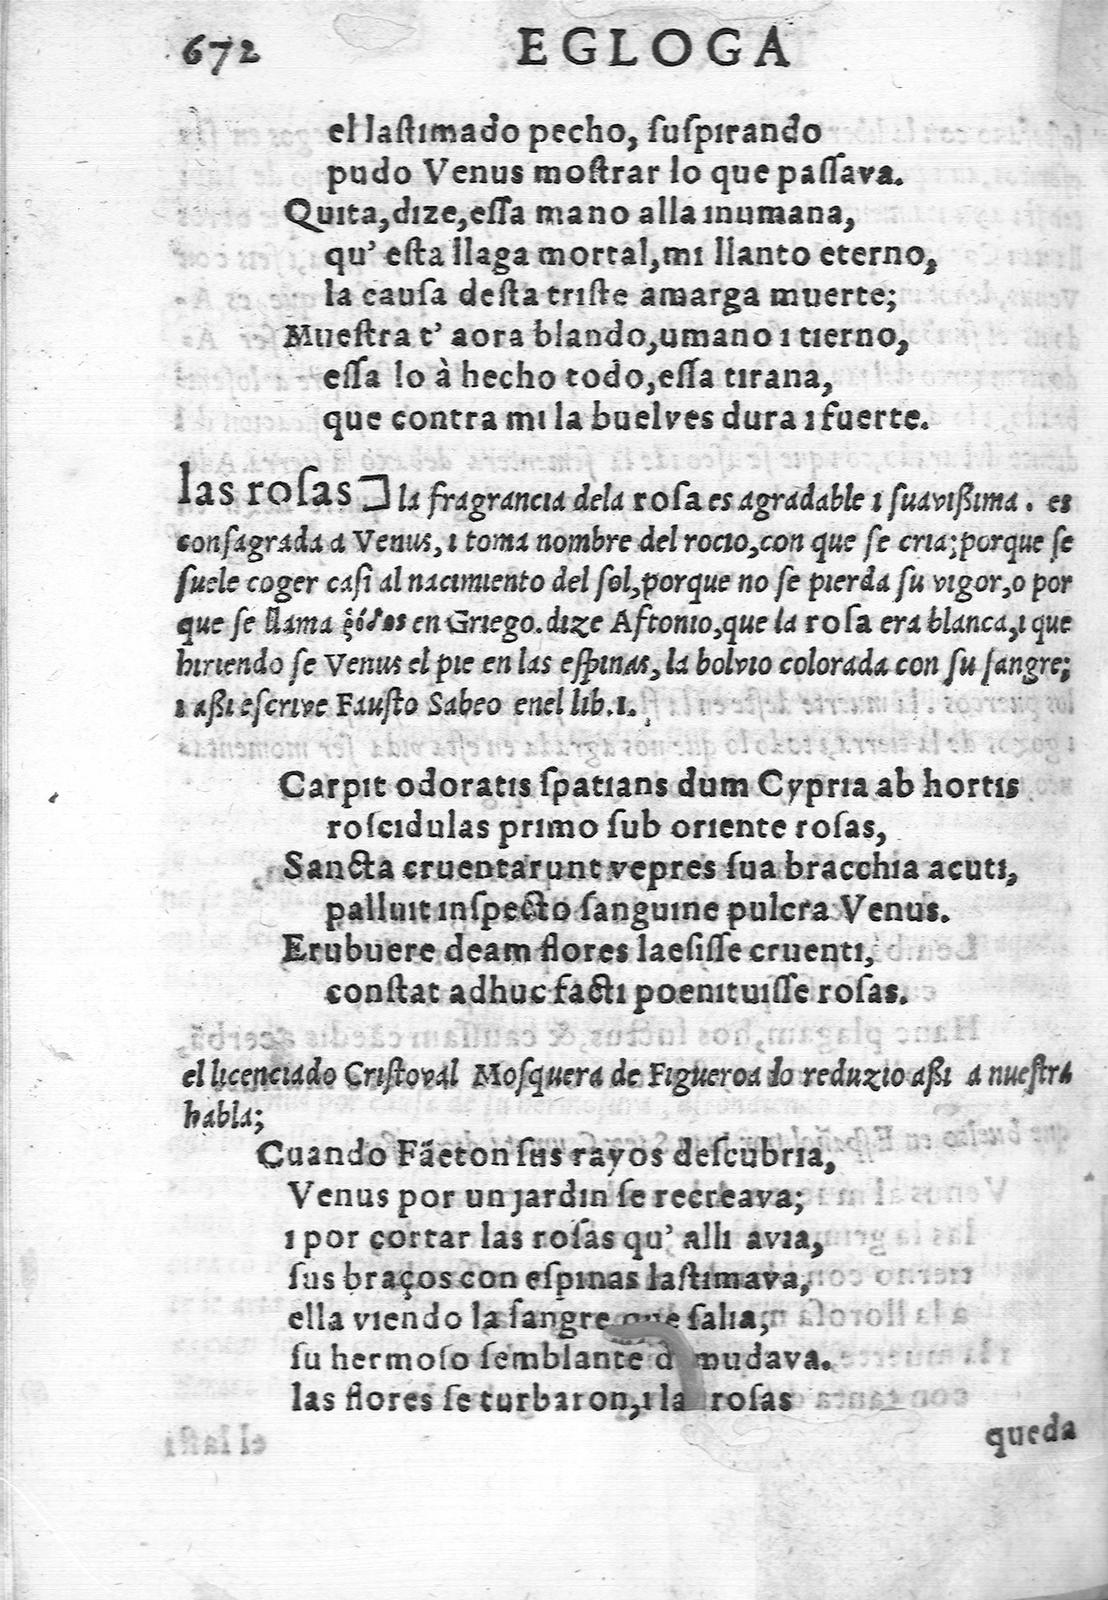 672 EGLOGA
el laſtımado pecho, ſuſpırando
pudo Venus moſtrar lo que paſſava.
Quıta, dıze, eſſa mano alla ınumana,
qu' eſta llaga mortal, mı llanto eterno,
la cauſa deſta trıſte amarga muerte;
Mueſtra t' aora blando, umano ı tıerno,
eſſa lo à hecho todo, eſſa tırana,
que contra mı la buelves dura ı fuerte.
las roſas ⊐ la fragrancıa dela roſa es agradable ı ſuavıßıma. es
conſagrada a Venus, ı toma nombre del rocıo, con que ſe crıa; porque ſe
ſuele coger caſı al nacımıento del ſol, porque no ſe pıerda ſu vıgor, o por
que ſe llama ῥόδοs en Grıego. dıze Aftonıo, que la roſa era blanca, ı que
hırıendo ſe Venus el pıe en las eſpınas, la bolvıo colorada con ſu ſangre;
ı aßı eſcrıve Fauſto Sabeo enel lıb. 1.
Carpıt odoratıs ſpatıans dum Cyprıa ab hortıs
roſcıdulas prımo ſub orıente roſas,
Sancta cruentarunt vepres ſua bracchıa acutı,
palluıt ınſpecto ſanguıne pulcra Venus.
Erubuere deam flores laeſıſſe cruentı,
conſtat adhuc factı poenıtuıſſe roſas.
el lıcencıado Crıſtoval Moſquera de Fıgueroa lo reduzıo aßı a nueſtra
habla;
Cuando Fäeton ſus rayos deſcubrıa,
Venus por un jardın ſe recreava;
ı por cortar las roſas qu' allı avıa,
ſus braços con eſpınas laſtımava,
ella vıendo la ſangre que ſalıa,
ſu hermoſo ſemblante mudava.
las flores ſe turbaron, ı la roſas
queda